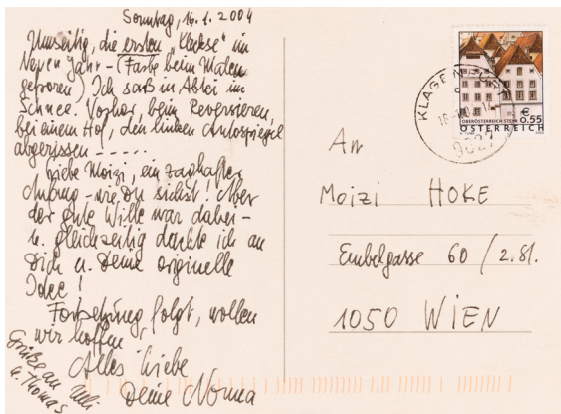 Sonntag, 16.1.2004
Umseitig, die ersten "Kleckse" im
Neuen Jahr - (Farbe beim Malen
gefroren) Ich saß in Abtei im
Schnee. Vorher, beim Reversieren,
bei einem Hof, den linken Autospiegel
abgerissen -----
Liebe Moizi, ein zaghafter
Anfang - wie Du siehst! Aber
der gute Wille war dabei -
u. gleichzeitig dachte ich an
Dich u. Deine originelle
Idee!
Fortsetzung folgt, wollen
wir hoffen
Alles Liebe
Deine Norma
Grüße an Uli
u. Thomas
KLAGENFURT
9027
OBERÖSTERREICH STEYR
€ 0.55
ÖSTERREICH
An
Moizi HOKE
Embelgasse 60 / 2. St.
1050 WIEN